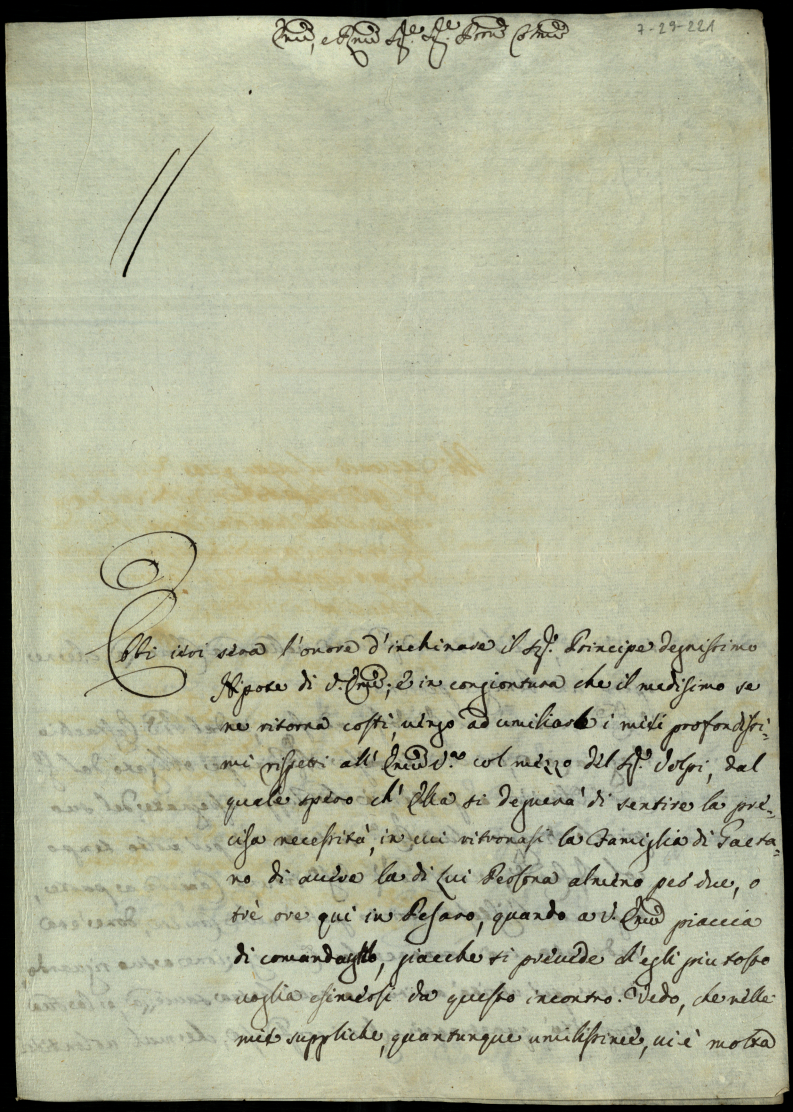 7-29-221
Em̃o, e Rm̃o Sig.e Sig.e Pron̄e Colm̃o
Ebbi ieri sera l'onore d'inchinare il Sig.e Principe degnissimo
Nipote di V. Em̃a; e in congiontura che il medisimo se
ne ritorna costì, vengo ad umiliarle i miei profondissi-
mi rispetti all'Em̃a V.ra col mezzo del Sig.e Volpi, dal
quale spero ch'Ella si degnerà di sentire la pre-
cisa necessità, in cui ritrovasi la Famiglia di Gaeta-
no di avere la di Lui Persona almeno per due, o
trè ore qui in Pesaro, quando a V. Em̃a piaccia
di comandarglielo, giacche si prevede ch'egli piu tosto
voglia esimersi da questo incontro. Vedo, che nelle
mie suppliche, quantunque umilissime, vi è molta